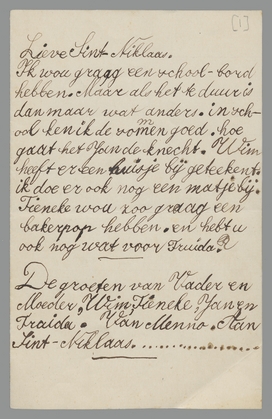 [1]
Lieve Sint Niklaas.
Ik wou graag een school-bord
hebben. Maar als het te duur is
dan maar wat anders. in sch-
ool ken ik de vormen goed. hoe
gaat het Jan de knecht. Wim
heeft er een huisje bij geteekent.
ik doe er ook nog een matje bij.
Tieneke wou zoo graag een
bakerpop hebben. en hebt u
ook nog wat voor Truida?
De groeten van Vader en
Moeder, Wim, Tieneke, Jan en
Truida. Van Menno. Aan
Sint-Niklaas. ..............